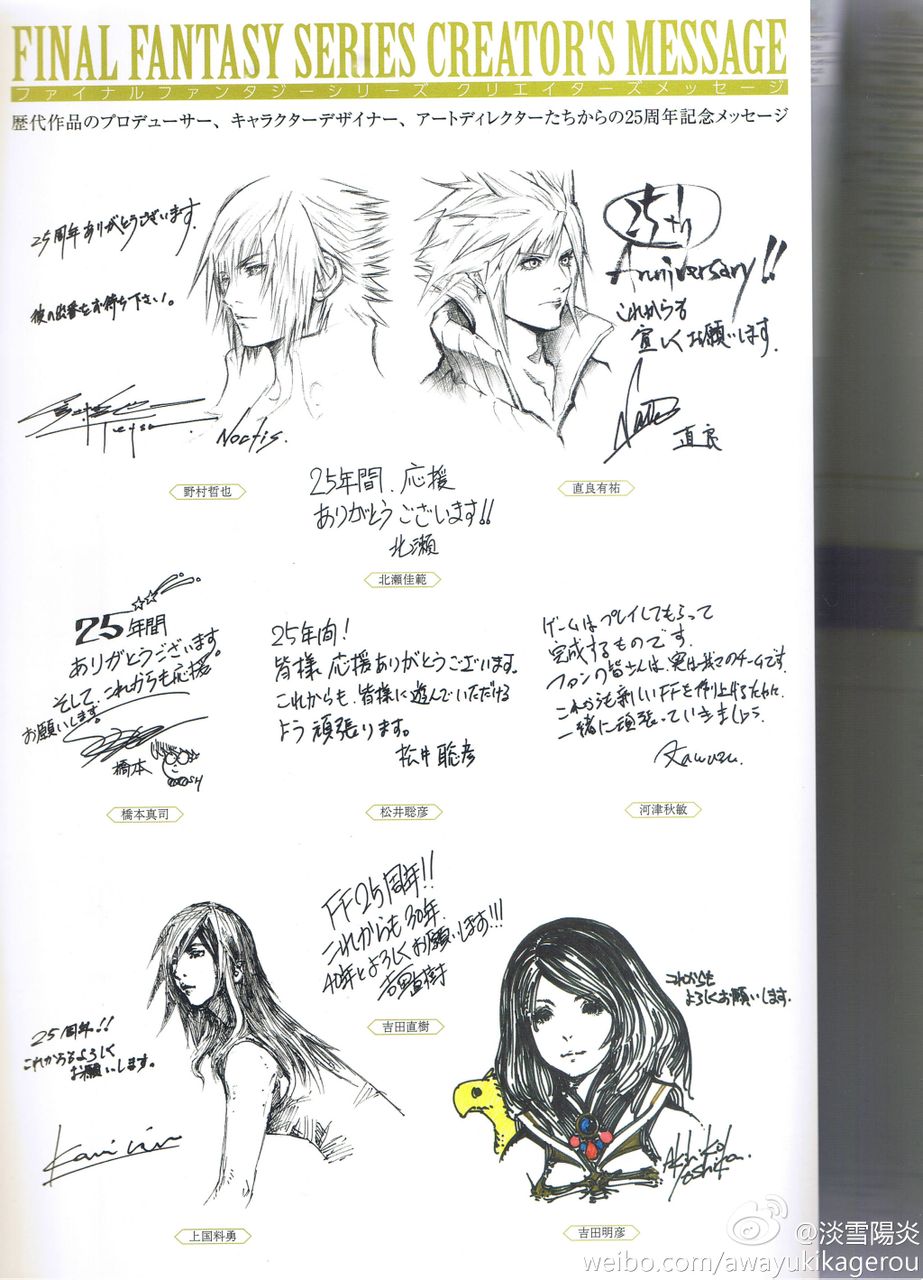 FINAL FANTASY SERIES CREATOR'S MESSAGE
ファイナルファンタジーシリーズ クリエイターズメッセージ
歴代作品のプロデューサー、キャラクターデザイナー、アートディレクターたちからの25周年記念メッセージ
25周年ありがとうございます
彼の出番をお待ち下さい。
Noctis.
野村哲也
25th
Anniversary!!
これからも
宜しくお願いします.
直良
直良有祐
25年間、応援
ありがとうございます!!
北瀬
北瀬佳範
25年間
ありがとうございます
そして、これからも応援
お願いします。
橋本
橋本真司
25年間!
皆様 応援ありがとうございます。
これからも、皆様に遊んでいただける
よう頑張ります。
松井聡彦
松井聡彦
ゲームはプレイしてもらって
完成するものです。
ファンの皆さんは、実は我々のチームです。
これからも新しいFFを作り上げるために、
一緒に頑張っていきましょう。
Kawazu.
河津秋敏
FF25周年!!
これからも30年、
40年とよろしくお願いします!!!
吉田直樹
吉田直樹
25周年!!
これからもよろしく
お願いします。
上国料勇
これからも
よろしくお願いします.
Akihiko
Yoshida.
吉田明彦
@淡雪陽炎
weibo.com/awayukikagerou